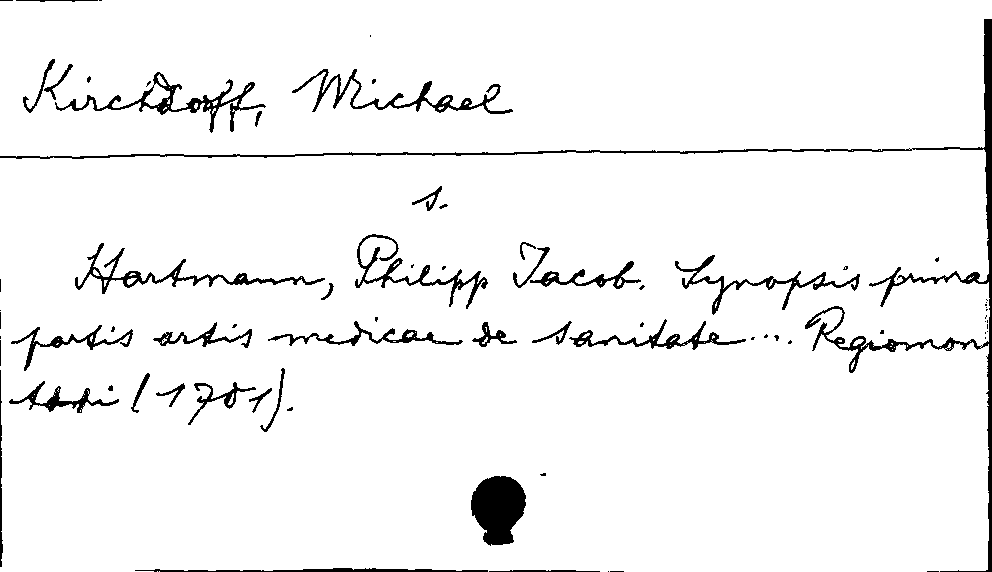 Kirchdorff, Michael
s.
Hartmann, Philipp Jacob. Synopsis prima
partis artis medicae de sanitate... Regiomon
(1701).